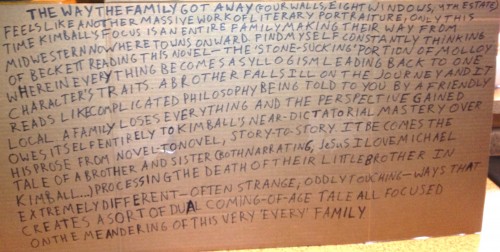 THE WAY THE FAMILY GOT AWAY (FOUR WALLS, EIGHT WINDOWS, 4TH ESTATE)
FEELS LIKE ANOTHER MASSIVE WORK OF LITERARY PORTRAITURE, ONLY THIS
TIME KIMBALL'S FOCUS IS AN ENTIRE FAMILY MAKING THEIR WAY FROM
MIDWESTERN NOWHERE TOWNS ONWARD. I FIND MYSELF CONSTANTLY THINKING
OF BECKETT READING THIS NOVEL—THE 'STONE-SUCKING' PORTION OF MOLLOY
WHEREIN EVERYTHING BECOMES A SYLLOGISM LEADING BACK TO ONE
CHARACTER'S TRAITS. A BROTHER FALLS ILL ON THE JOURNEY AND IT
READS LIKE COMPLICATED PHILOSOPHY BEING TOLD TO YOU BY A FRIENDLY
LOCAL. A FAMILY LOSES EVERYTHING AND THE PERSPECTIVE GAINED
OWES ITSELF ENTIRELY TO KIMBALL'S NEAR-DICTATORIAL MASTERY OVER
HIS PROSE FROM NOVEL-TO-NOVEL, STORY-TO-STORY. IT BECOMES THE
TALE OF A BROTHER AND SISTER (BOTH NARRATING, JESUS I LOVE MICHAEL
KIMBALL...) PROCESSING THE DEATH OF THEIR LITTLE BROTHER IN
EXTREMELY DIFFERENT—OFTEN STRANGE, ODDLY TOUCHING—WAYS THAT
CREATES A SORT OF DUAL COMING-OF-AGE TALE ALL FOCUSED
ON THE MEANDERING OF THIS VERY 'EVERY' FAMILY